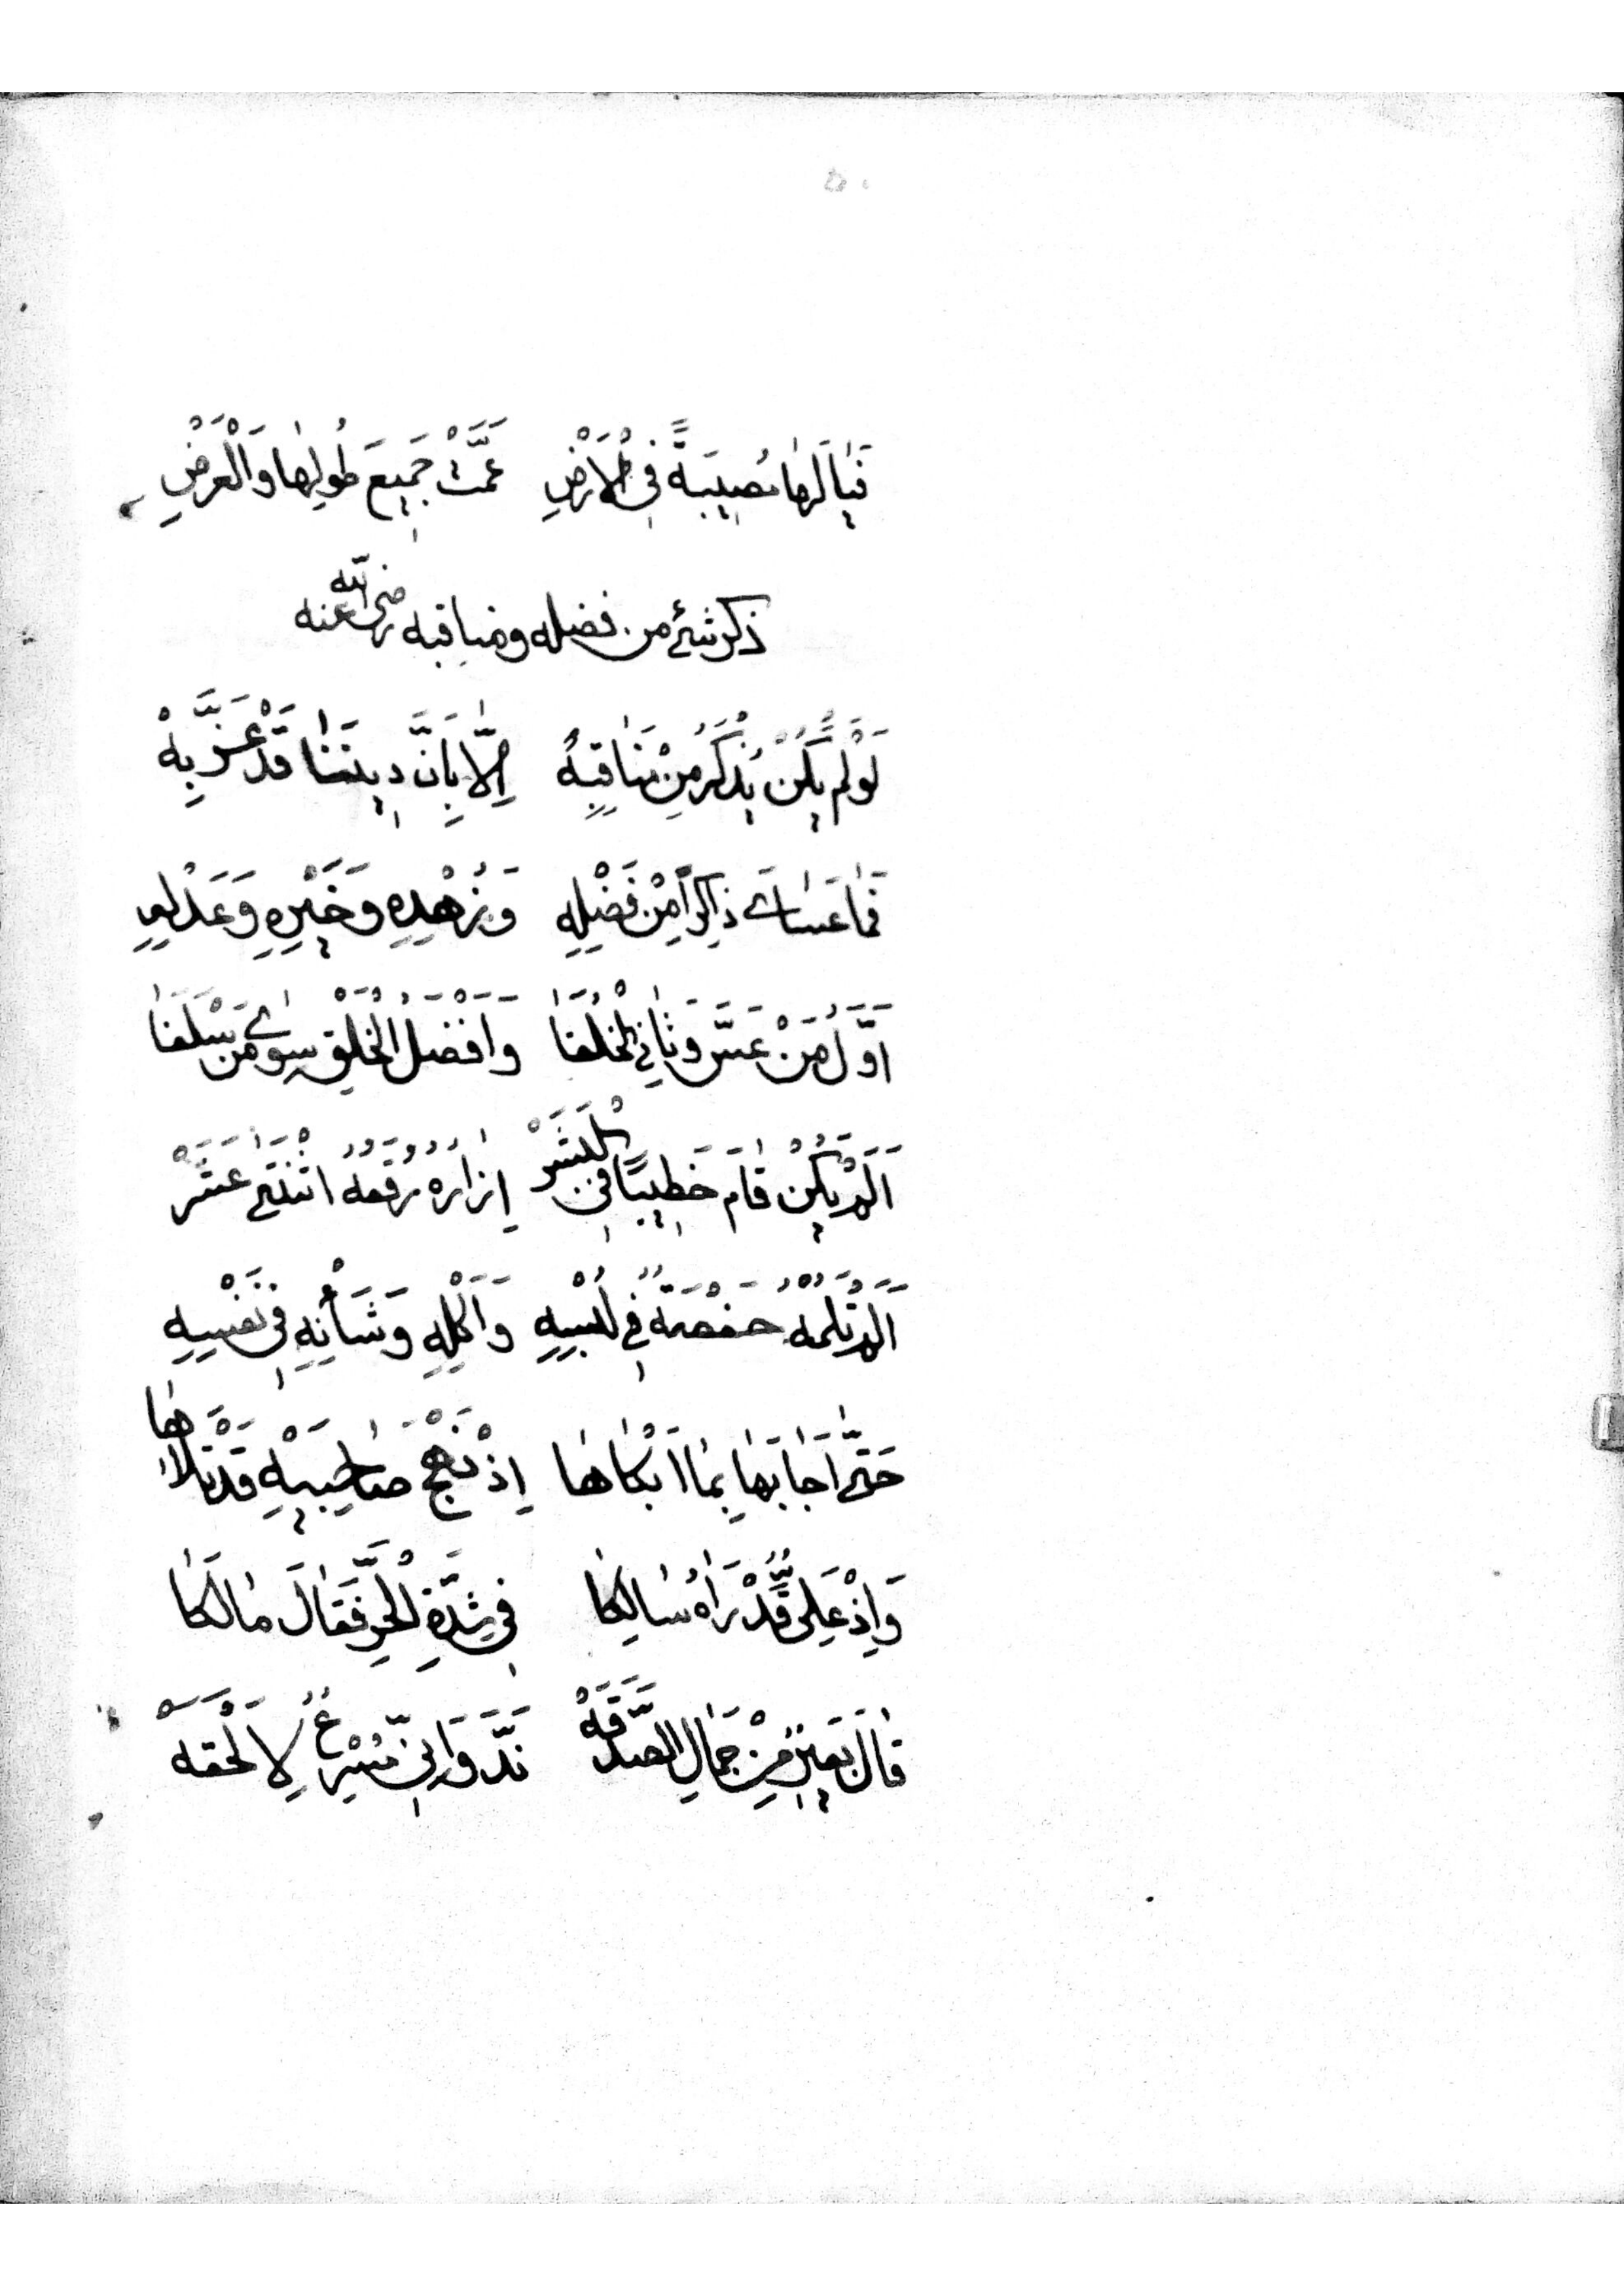 ٥٠
فَيَا لَهَا مُصِيبَةً فِي الْاَرْضِ عَمَّتْ جَمِيعَ طُولِهَا وَالْعَرْضِ
ذكر شئ من فضله ومناقبه رضى الله عنه
لَوْ لَمْ يَكُنْ يُذْكَرُ مِنْ مَنَاقِبِهْ اِلَّا بِاَنَّ دِينَنَا قَدْ عَزَّ بِهْ
فَمَا عَسَاىَ ذَاكِرًا مِنْ فَضْلِهِ وَزُهْدِهِ وَخَيْرِهِ وَعَدْلِهِ
اَوَّلُ مَنْ عَسَّ وَثَانِي الْخُلَفَا وَاَفْضَلُ الْخَلْقِ سِوٰى مَنْ سَلَفَا
اَلَمْ يَكُنْ قَامَ خَطِيبًا فِي الْبَشَرْ اِزَارُهُ رُقَعُهُ اثْنَتَىْ عَشَرْ
اَلَمْ تَلُمْهُ حَفْصَةٌ فِي لُبْسِهِ وَاَكْلِهِ وَشَأْنِهِ فِي نَفْسِهِ
حَتَّى اَجَابَهَا بِمَا اَبْكَاهَا اِذْ نَهْجَ صَاحِبَيْهِ قَدْ تَلَاهَا
وَاِذْ عَلِىٌّ قَدْ رَاٰهُ سَالِكَا فِي شِدَّةِ الْحَرِّ فَقَالَ مَا لَكَا
قَالَ بَعِيرٌ مِنْ جِمَالِ الصَّدَقَهْ نَدَّ وَاِنِّي مُسْرِعٌ لِاَلْحَقَهْ